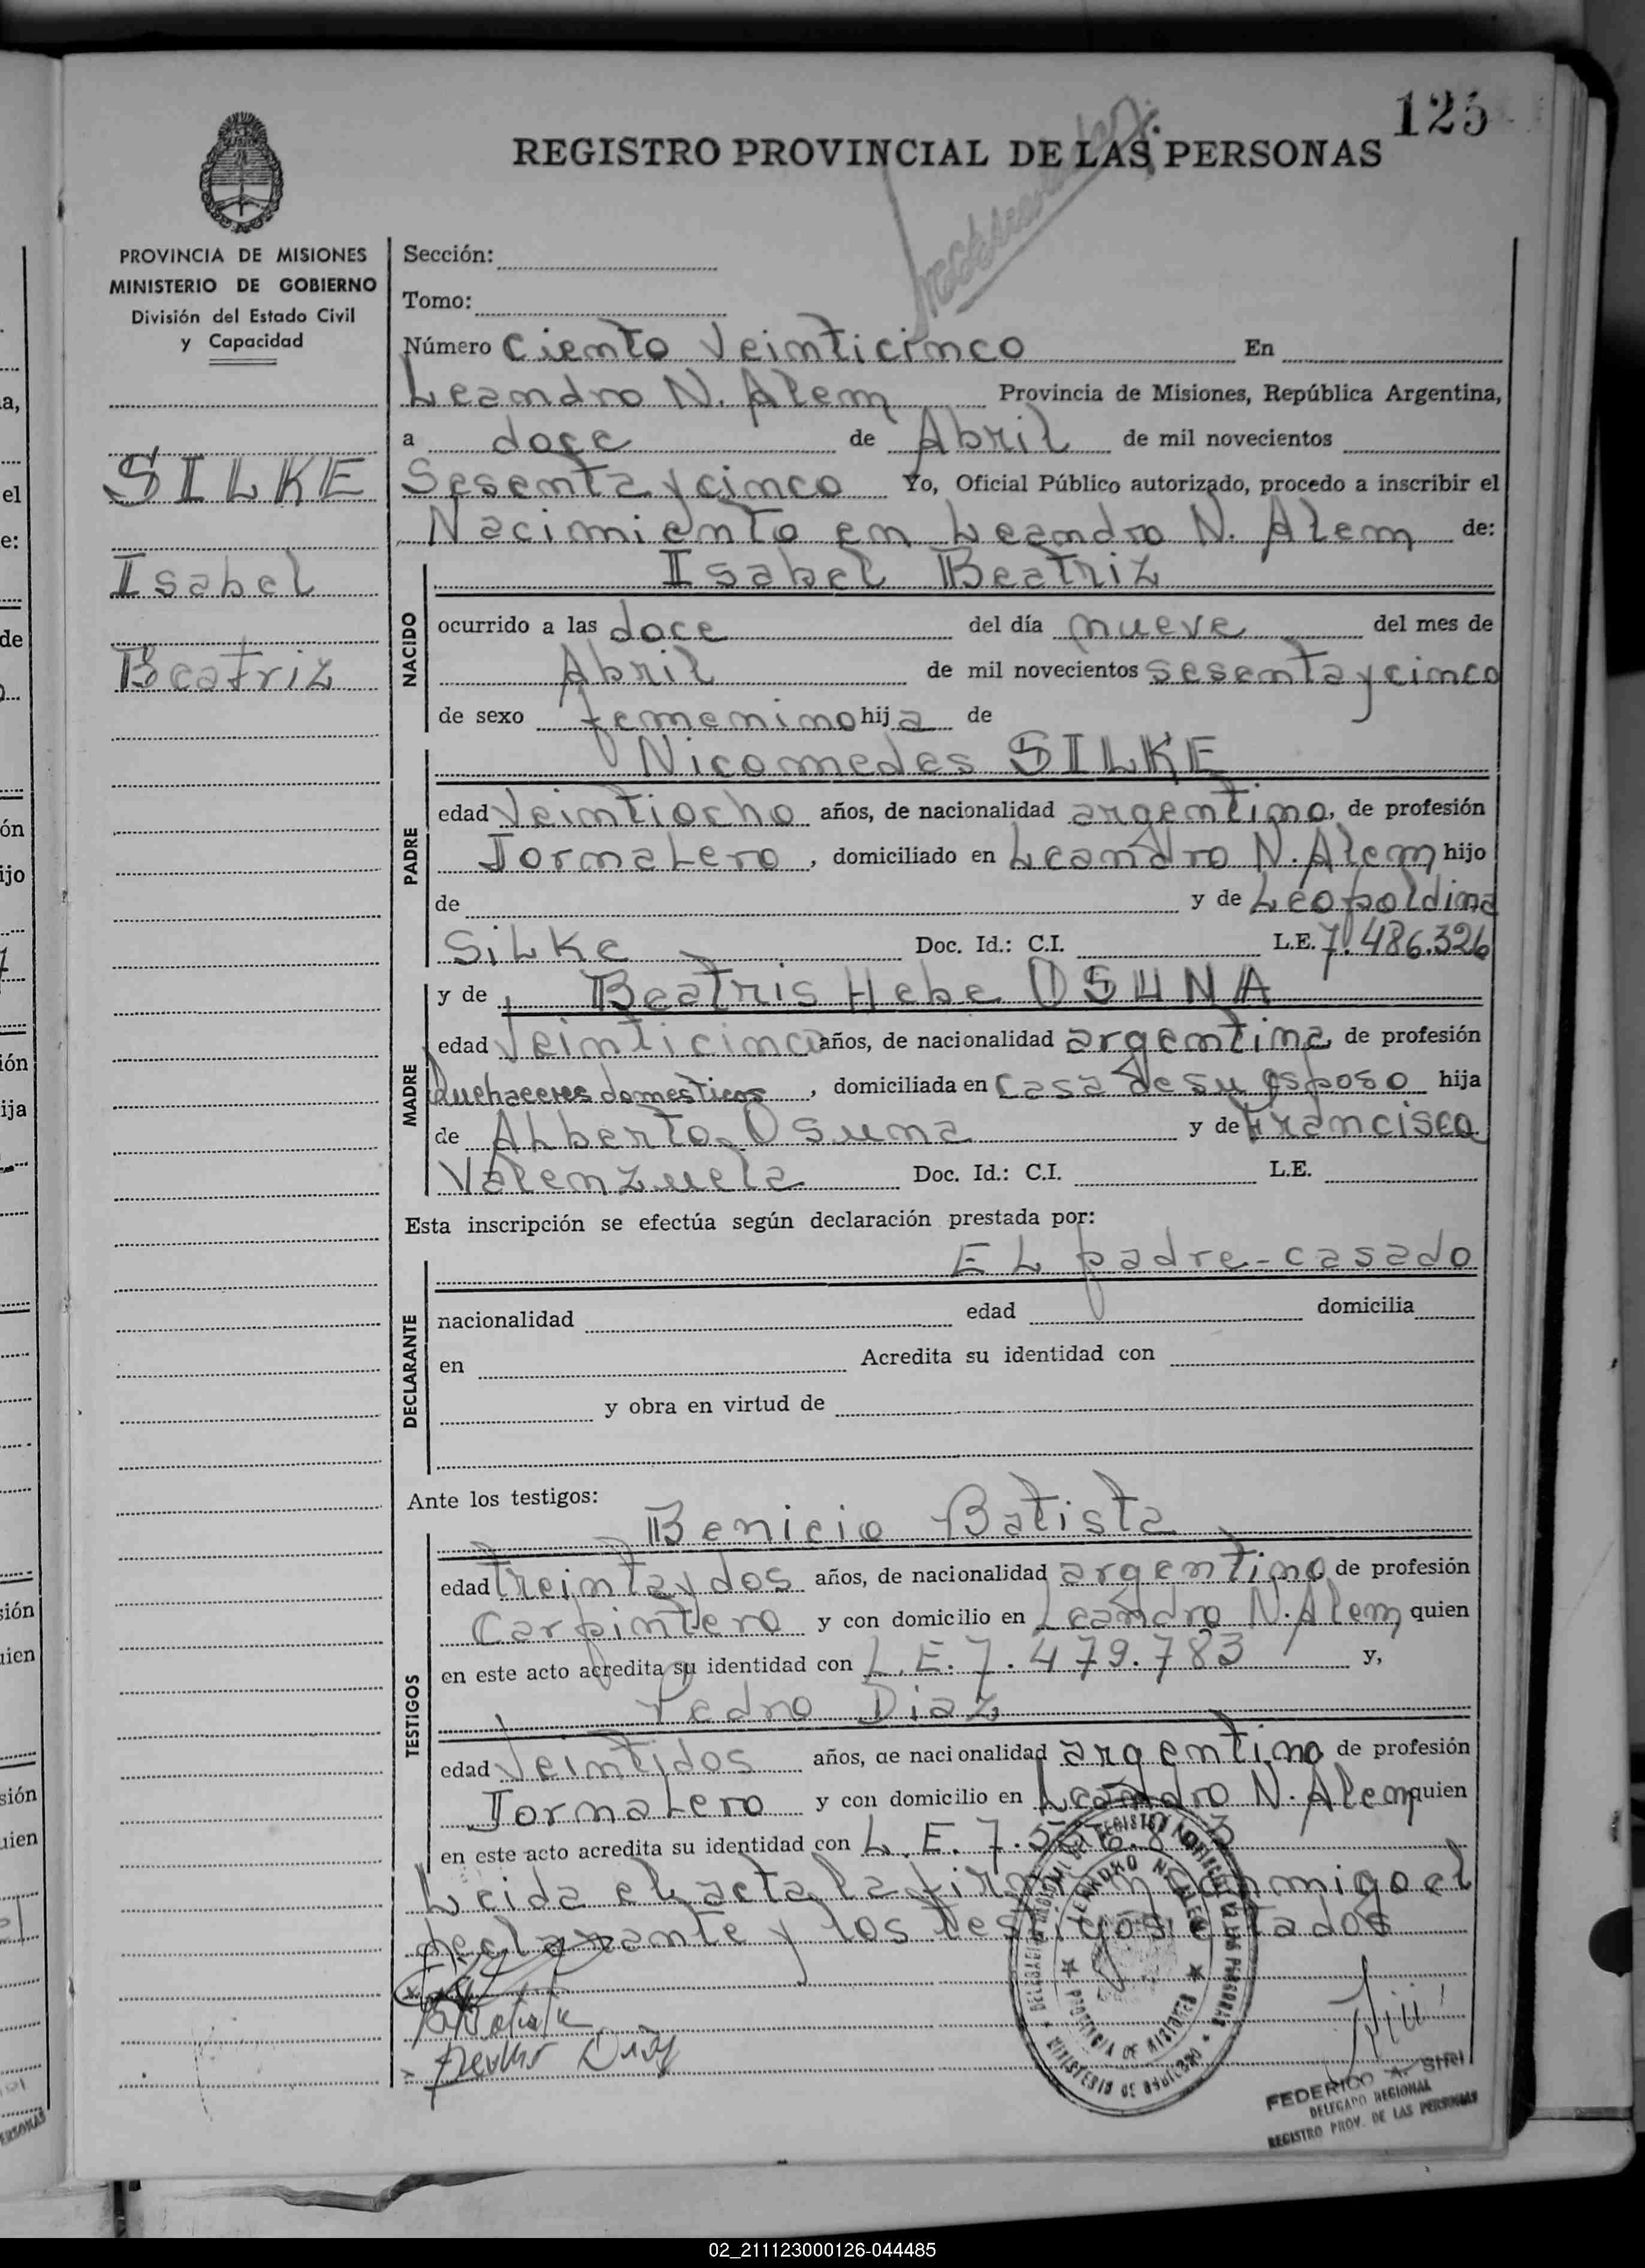 125
REGISTRO PROVINCIAL DE LAS PERSONAS
PROVINCIA DE MISIONES
MINISTERIO DE GOBIERNO
División del Estado Civil
y Capacidad
SILKE
Isabel
Beatriz
Sección:
Tomo:
Número Ciento Veinticinco En
Leandro N. Alem Provincia de Misiones, República Argentina,
a doce de Abril de mil novecientos
Sesenta y cinco Yo, Oficial Público autorizado, procedo a inscribir el
Nacimiento en Leandro N. Alem de:
NACIDO
Isabel Beatriz
ocurrido a las doce del día nueve del mes de
Abril de mil novecientos sesenta y cinco
de sexo femenino hija de
PADRE
Nicomedes SILKE
edad Veintiocho años, de nacionalidad argentino, de profesión
Jornalero, domiciliado en Leandro N. Alem hijo
de y de Leopoldina
Silke Doc. Id.: C.I. L.E. 7.486.326
MADRE
y de Beatris Hebe OSUNA
edad Veinticinco años, de nacionalidad argentina, de profesión
Quehaceres domesticos, domiciliada en casa de su esposo hija
de Alberto Osuna y de Francisca
Valenzuela Doc. Id.: C.I. L.E.
Esta inscripción se efectúa según declaración prestada por:
DECLARANTE
El padre - casado
nacionalidad edad domicilia
en Acredita su identidad con
y obra en virtud de
Ante los testigos:
TESTIGOS
Benicio Batista
edad treinta y dos años, de nacionalidad argentino de profesión
Carpintero y con domicilio en Leandro N. Alem quien
en este acto acredita su identidad con L.E. 7.479.783 y,
Pedro Diaz
edad Veintidos años, de nacionalidad argentino de profesión
Jornalero y con domicilio en Leandro N. Alem quien
en este acto acredita su identidad con L.E. 7.
Leida el acta la firman conmigo el
declarante y los testigos citados
Pedro Diaz
LEANDRO N. ALEM
PROVINCIA DE MISIONES
FEDERICO A.
DELEGADO REGIONAL
REGISTRO PROV. DE LAS PERSONAS
02_211123000126-044485